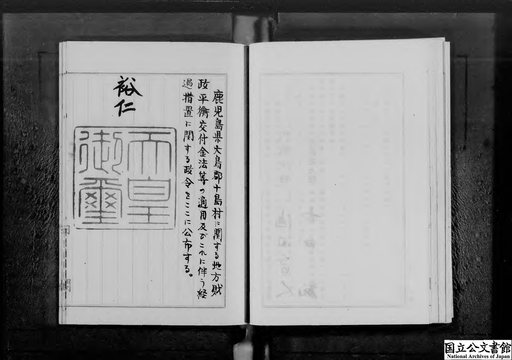 鹿児島県大島郡十島村に関する地方財
政平衡交付金法等の適用及びこれに伴う経
過措置に関する政令をここに公布する。
裕仁
天皇
御璽
国立公文書館
National Archives of Japan